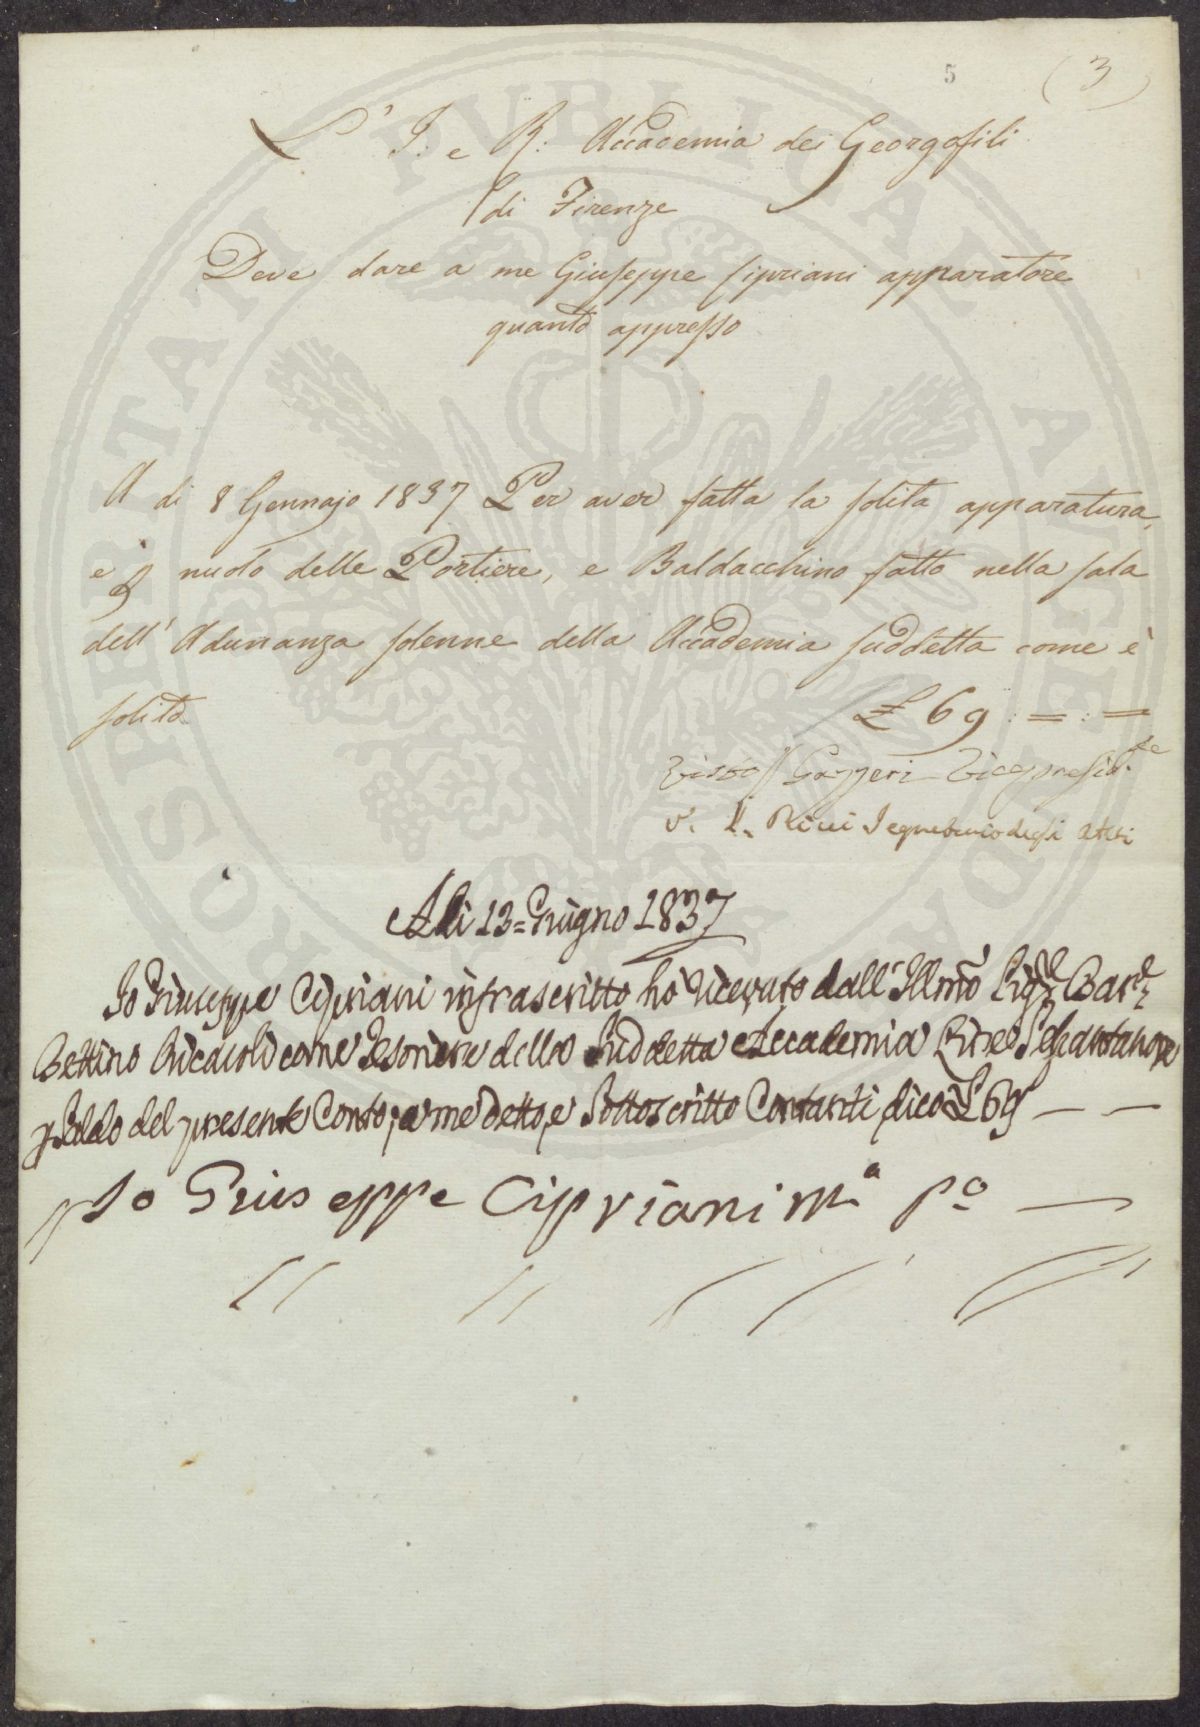 5 (3)
L' I: e R: Accademia dei Georgofili
di Firenze
Deve dare a me Giuseppe Cipriani apparatore
quanto appresso
A di 8 Gennajo 1837 Per aver fatta la solita apparatura,
e p nuolo delle Portiere, e Baldacchino fatto nella sala
dell' Adunanza solenne della Accademia suddetta come è
solito
£ 69 : = : =
Visto Gazzeri Vicepresid.te
V. L. Ricci Segretario degli Atti
Adi 13 = Giugno 1837
Io Giuseppe Cipriani infrascritto ho ricevuto dall' Illmo Sig.re Bar.e
Bettino Ricasoli come Tesoriere della Suddetta Accademia Lire Sessantanove
p Saldo del presente Conto, a me detto, e Sottoscritto Contanti, dico £ 69 — —
Io Giuseppe Cipriani m.a p.a —
PROSPERITATI PUBLICAE AUGENDAE